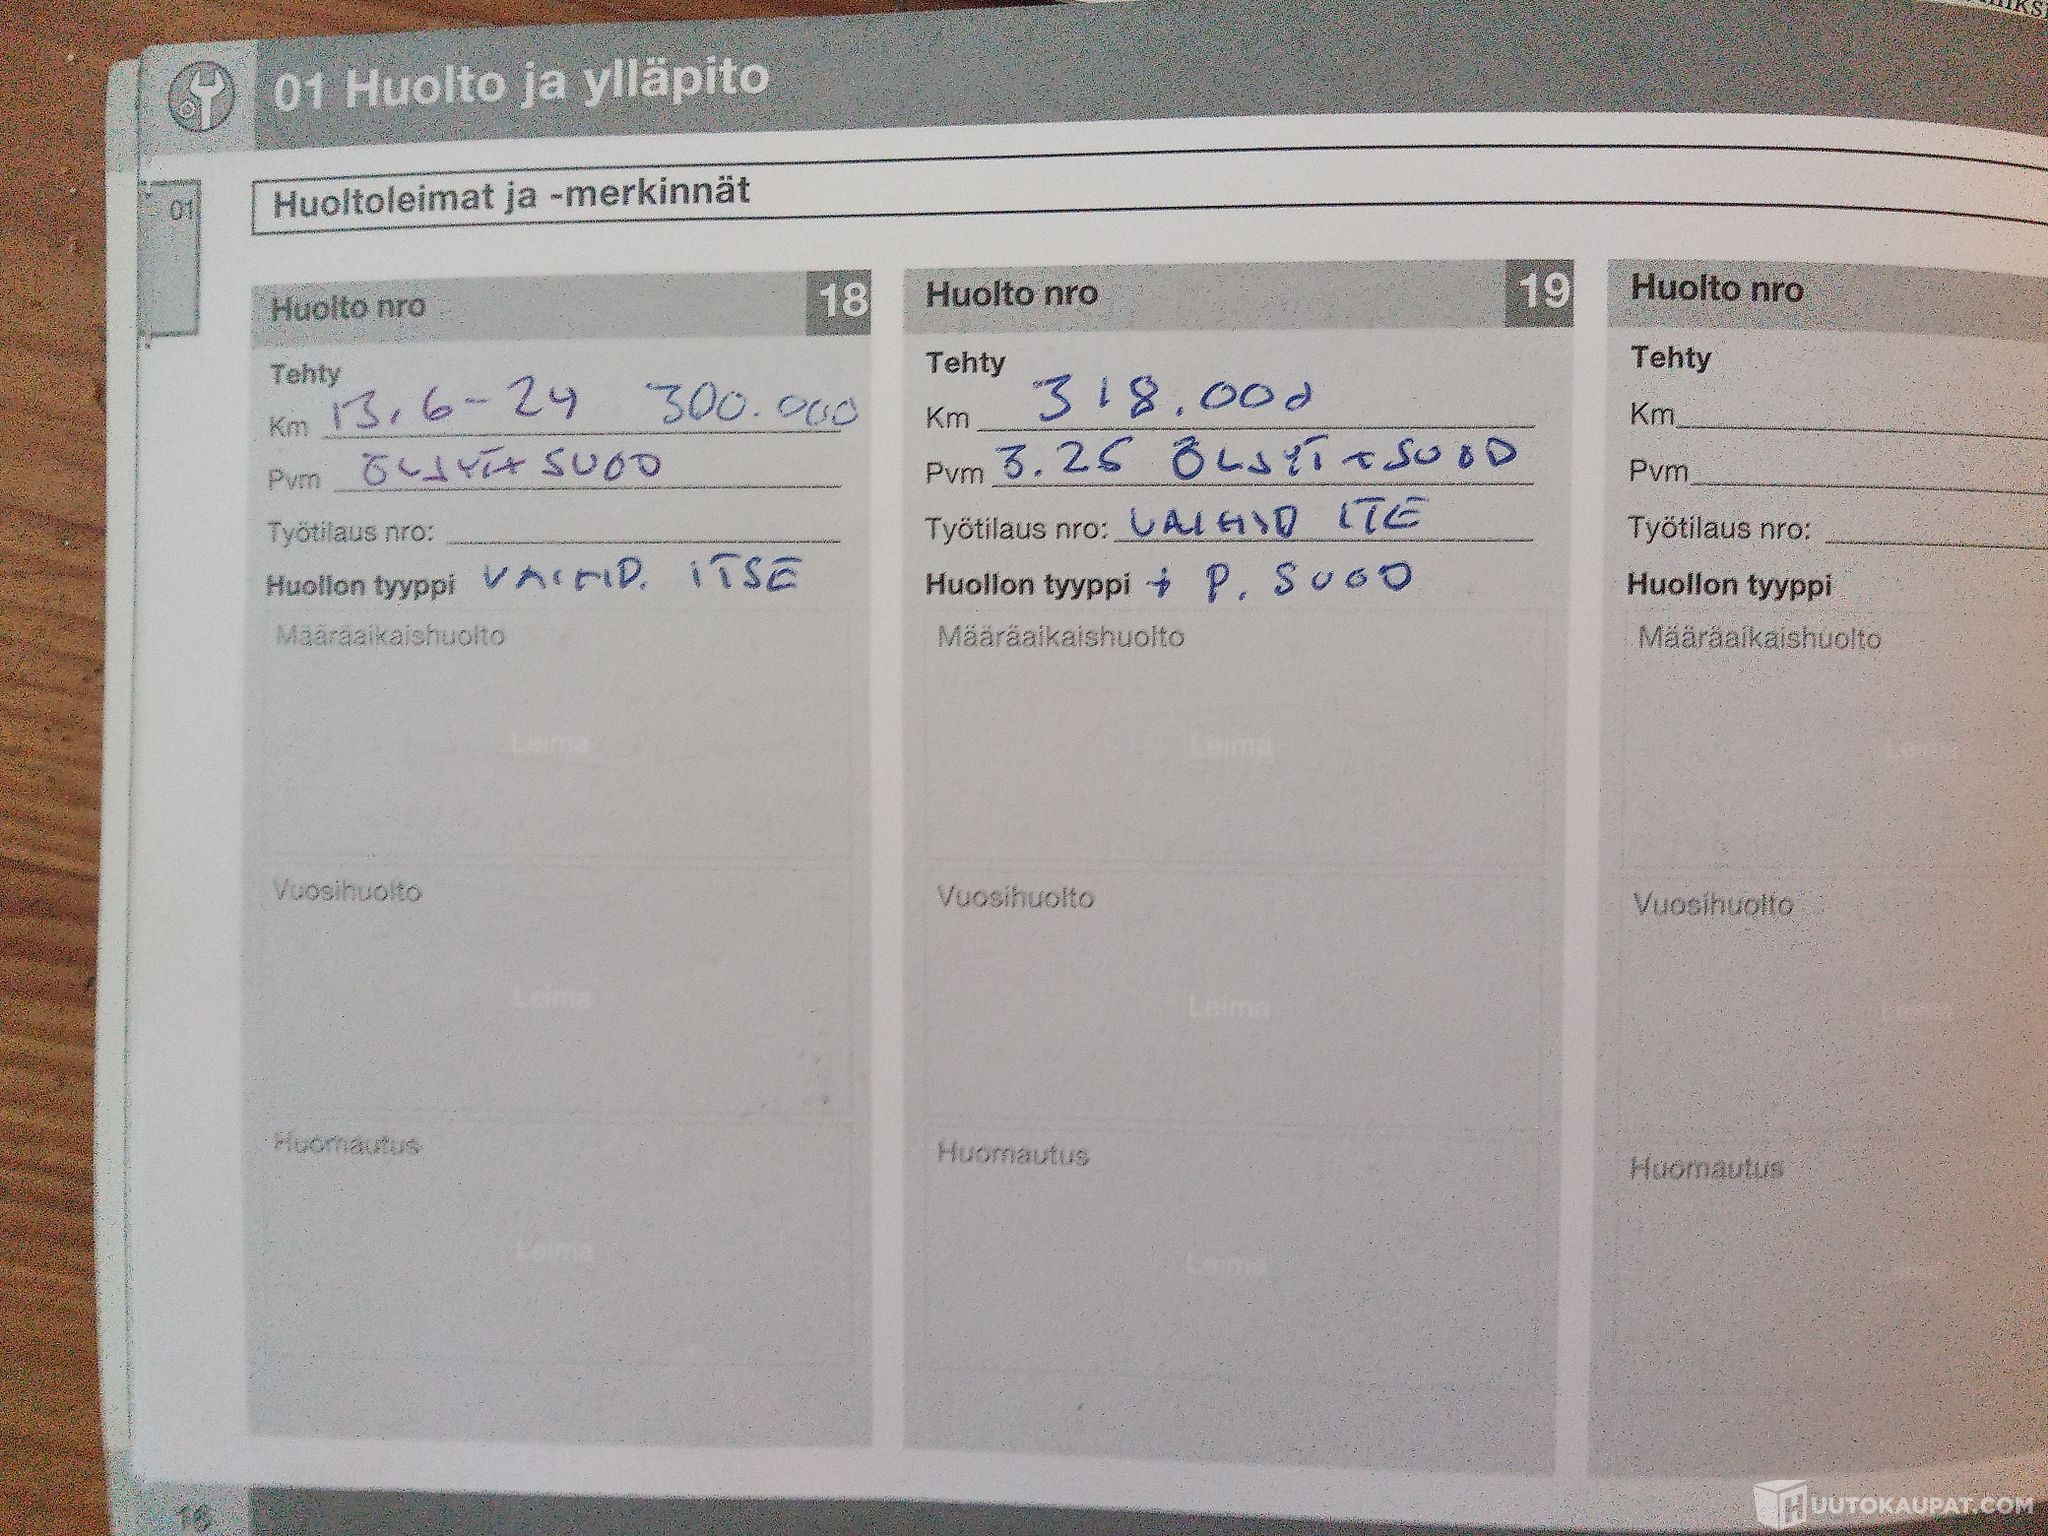 01 Huolto ja ylläpito
01
Huoltoleimat ja -merkinnät
Huolto nro 18
Tehty
Km 13.6-24 300.000
Pvm ÖLJYT+SUOD
Työtilaus nro:
Huollon tyyppi VAIHD. ITSE
Määräaikaishuolto
Leima
Vuosihuolto
Leima
Huomautus
Leima
Huolto nro 19
Tehty
Km 318.000
Pvm 3.25 ÖLJYT+SUOD
Työtilaus nro: VAIHD ITE
Huollon tyyppi + P. SUOD
Määräaikaishuolto
Leima
Vuosihuolto
Leima
Huomautus
Leima
Huolto nro
Tehty
Km
Pvm
Työtilaus nro:
Huollon tyyppi
Määräaikaishuolto
Leima
Vuosihuolto
Leima
Huomautus
16
HUUTOKAUPAT.COM